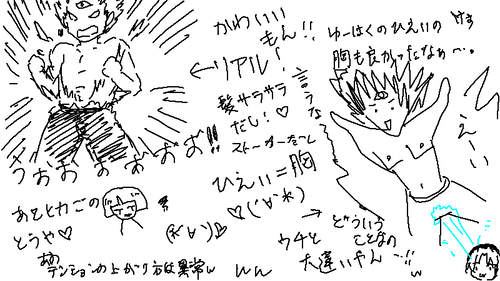 かわいい
もん!!
←リアル!
髪サラサラ
だし!♡
ストーカーだっと
言うな
ひえい=胸
♡(´ｶﾞﾚ)
ゆーはくのひえいの
胸も良かったなぁ〜。
えーい
うぉぉぉぉぉぉ!!
あとヒカごの
とうや♡
あの
テンションの上がり方は異常w
ww
→どういう
ことなの
ウチと
大違いやん〜!!
w